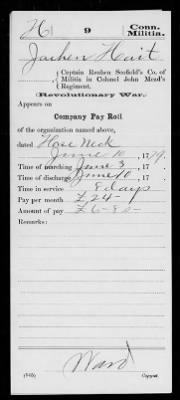 H 9 Conn.
Militia.
Jachen Hait
Captain Reuben Scofield's Co. of
Militia in Colonel John Mead's
Regiment.
(Revolutionary War.)
Appears on
Company Pay Roll
of the organization named above,
dated Hose Neck
June 10, 1779.
Time of marching June 3, 17
Time of discharge June 10, 17
Time in service 8 days
Pay per month £24-
Amount of pay £6-8s-
Remarks:
Ward
(545) Copyist.